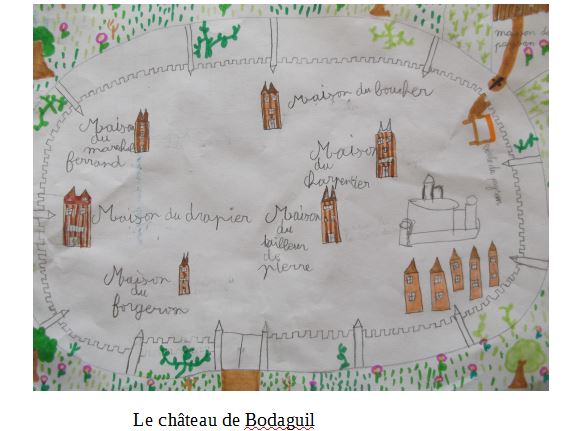 maison du
paysan
Maison du boucher
Maison
du
marchand
ferrand
Maison
du
charpentier
Maison du drapier
Maison
du
tailleur
de
pierre
Maison
du
forgeron
Le château de Bodaguil